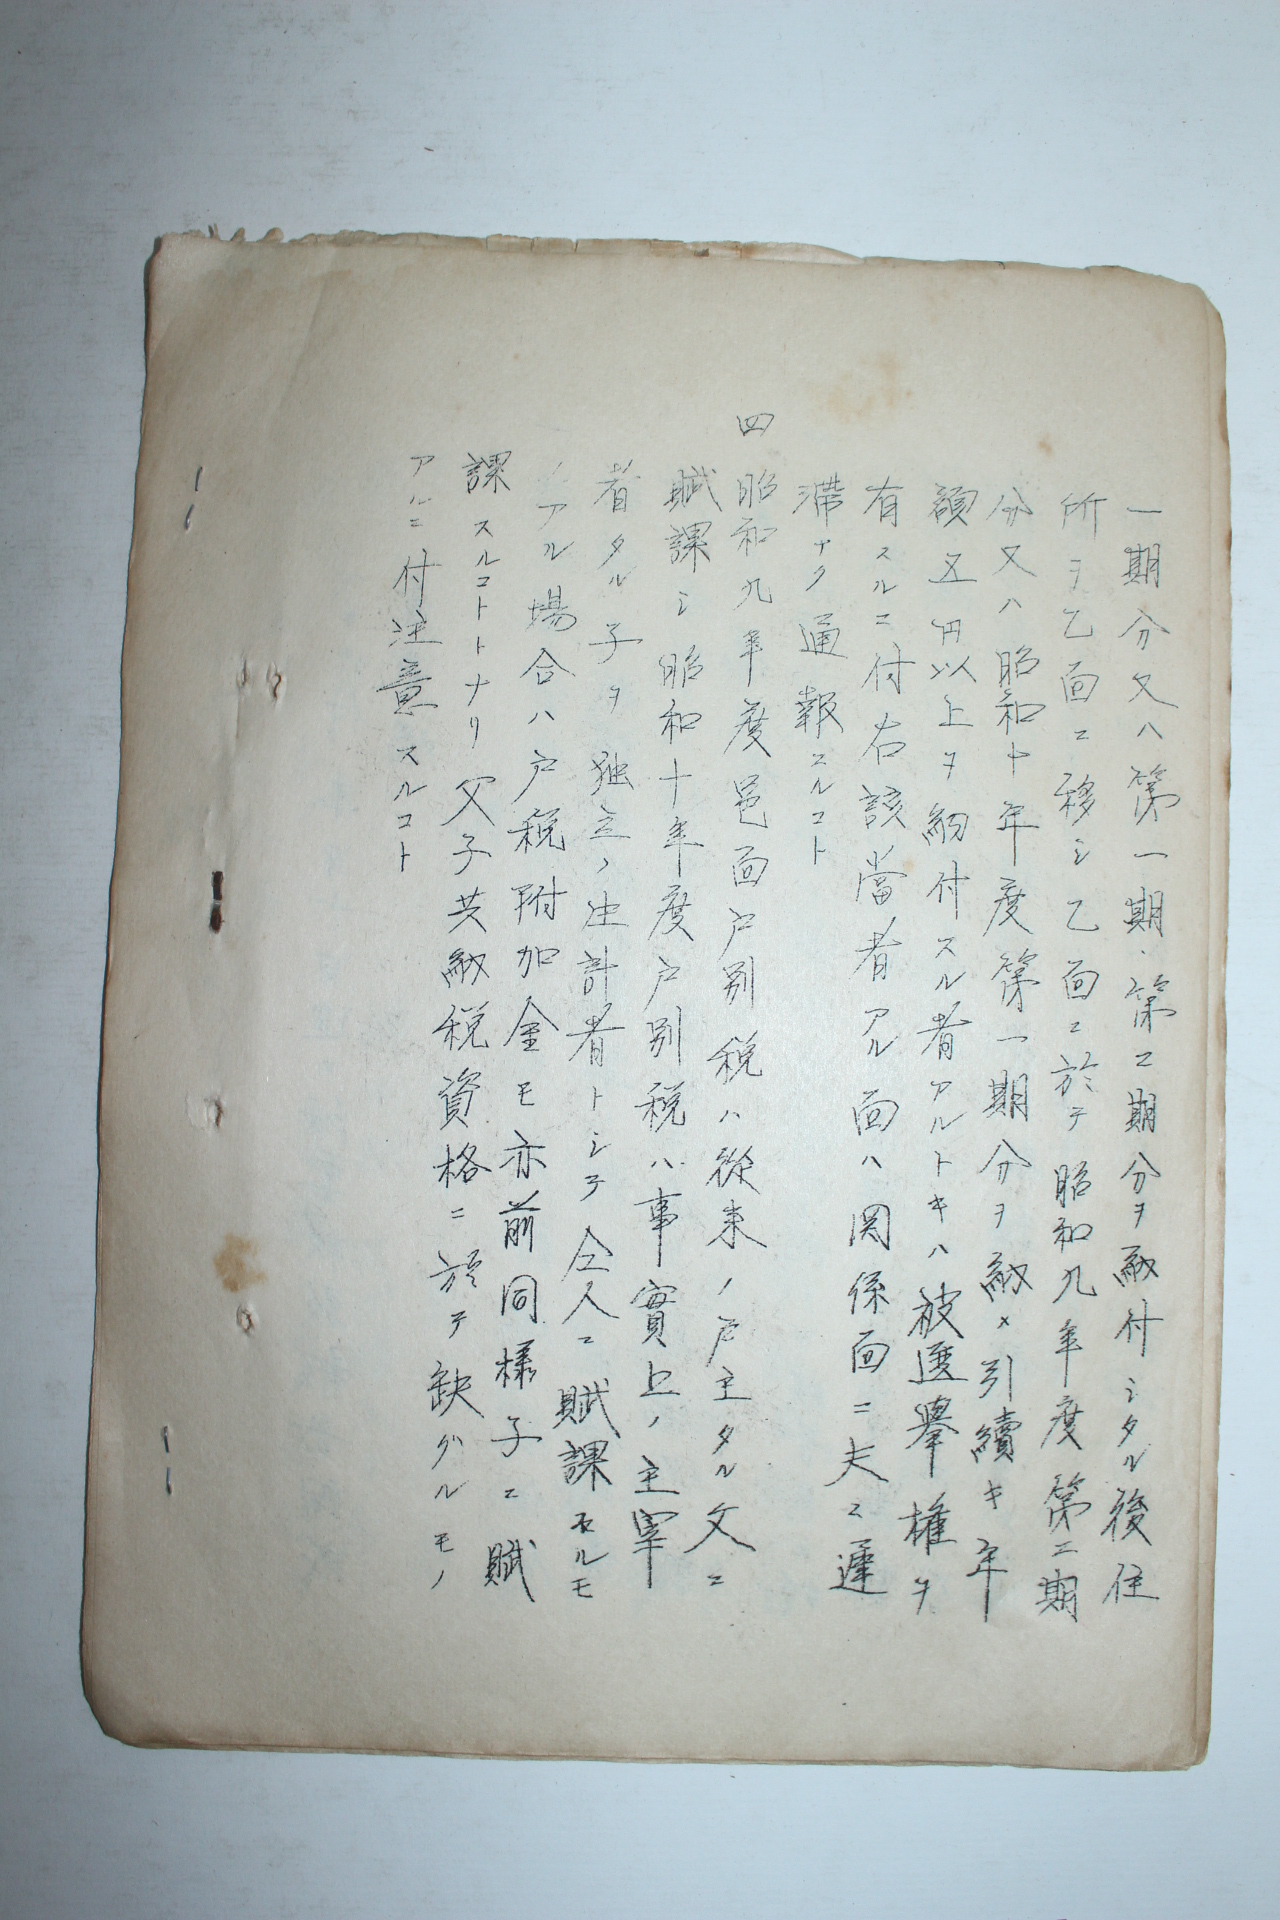 一期分又ハ第一期、第二期分ヲ納付シタル後住
所ヲ乙面ニ移シ乙面ニ於テ昭和九年度第二期
分又ハ昭和十年度第一期分ヲ納メ引續キ年
額五円以上ヲ納付スル者アルトキハ被選擧權ヲ
有スルニ付右該當者アル面ハ関係面ニ夫々遅
滞ナク通報スルコト
四 昭和九年度邑面戸別税ハ從来ノ戸主タル父ニ
賦課シ昭和十年度戸別税ハ事實上ノ主宰
者タル子ヲ独立ノ生計者トシテ仝人ニ賦課セルモ
ノアル場合ハ戸税附加金モ亦前同様子ニ賦
課スルコトトナリ父子共納税資格ニ於テ缺グルモノ
アルニ付注意スルコト